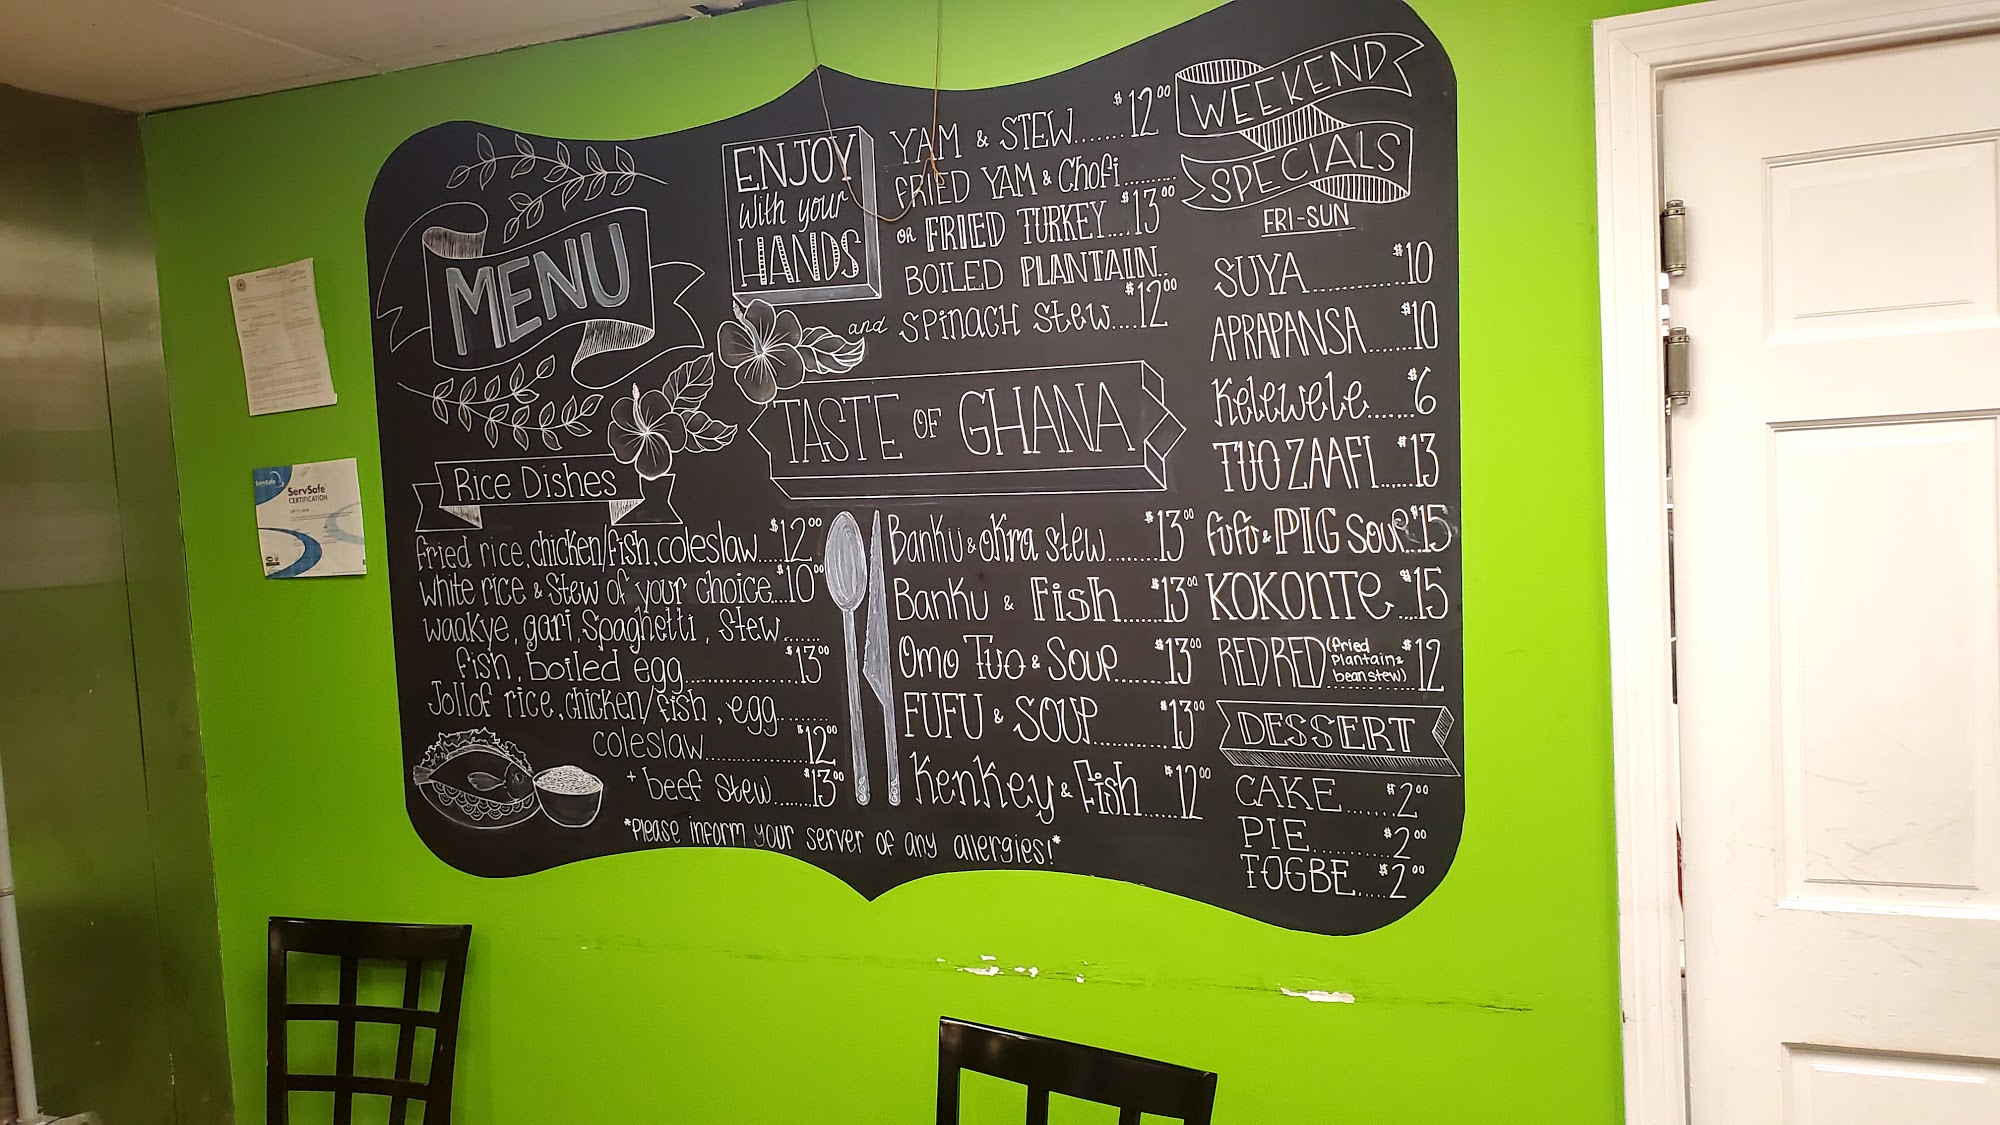 MENU
Rice Dishes
fried rice, chicken/fish, coleslaw....$12.00
white rice & Stew of your choice...$10.00
waakye, gari, Spaghetti, Stew......
fish, boiled egg..................$13.00
Jollof rice, chicken/fish, egg.........
coleslaw..............$12.00
+ beef stew.......$13.00
*Please inform your server of any allergies!*
ENJOY
with your
HANDS
YAM & STEW......$12.00
FRIED YAM & Chofi.........
or FRIED TURKEY....$13.00
BOILED PLANTAIN..
and SPINACH Stew....$12.00
TASTE OF GHANA
Banku & Okra Stew.......$13.00
Banku & Fish.......$13.00
Omo Tuo & Soup........$13.00
FUFU & SOUP...........$13.00
Kenkey & Fish....$12.00
WEEKEND
SPECIALS
FRI-SUN
SUYA.............$10
APRAPANSA.......$10
Kelewele.......$6
TUO ZAAFI......$13
fufu & PIG Soup..$15
KOKONTE...$15
RED RED (fried
Plantain &
bean stew) $12
DESSERT
CAKE......$2.00
PIE..........$2.00
TOGBE....$2.00
ServSafe
ServSafe
CERTIFICATION